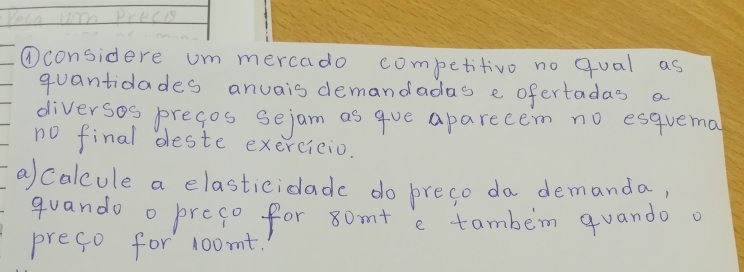 Peça um preço
①considere um mercado competitivo no qual as
quantidades anuais demandadas e ofertadas a
diversos preços sejam as que aparecem no esquema
no final deste exercício.
a) Calcule a elasticidade do preço da demanda,
quando o preço for 80mt e também quando o
preço for 100mt.